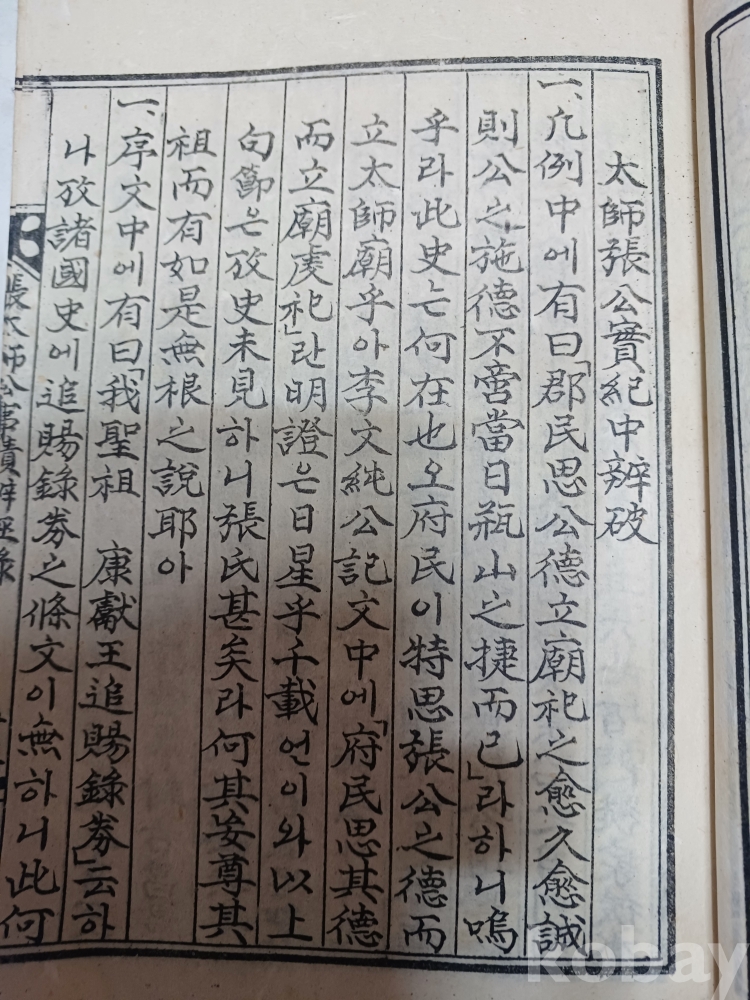 太師張公實紀中辨破
一、凡例中에有曰「郡民思公德立廟祀之愈久愈誠
則公之施德不啻當日甁山之捷而已」라하니嗚
乎라此史는何在也오府民이特思張公之德而
立太師廟乎아李文純公記文中에「府民思其德
而立廟虔祀」란明證은日星乎千載언이와以上
句節은攷史未見하니張氏甚矣라何其妄尊其
祖而有如是無根之說耶아
一、序文中에有曰「我聖祖 康獻王追賜錄券」云하
나攷諸國史에追賜錄券之條文이無하니此何
張太師公事蹟辨誣錄
kobay